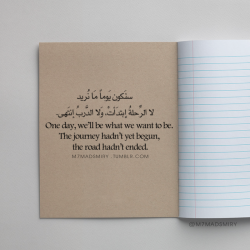 سنَكون يَوماً مَا نُريد
لا الرِّحلةُ إبتَدأتْ، وَلا الدَّربُ إنتَهى.
One day, we'll be what we want to be.
The journey hadn't yet begun,
the road hadn't ended.
M17MADSMIRY . TUMBLR . COM